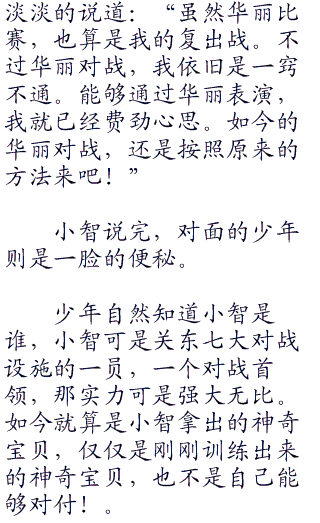 淡淡的说道：“虽然华丽比
赛，也算是我的复出战。不
过华丽对战，我依旧是一窍
不通。能够通过华丽表演，
我就已经费劲心思。如今的
华丽对战，还是按照原来的
方法来吧！”
小智说完，对面的少年
则是一脸的便秘。
少年自然知道小智是
谁，小智可是关东七大对战
设施的一员，一个对战首
领，那实力可是强大无比。
如今就算是小智拿出的神奇
宝贝，仅仅是刚刚训练出来
的神奇宝贝，也不是自己能
够对付！。